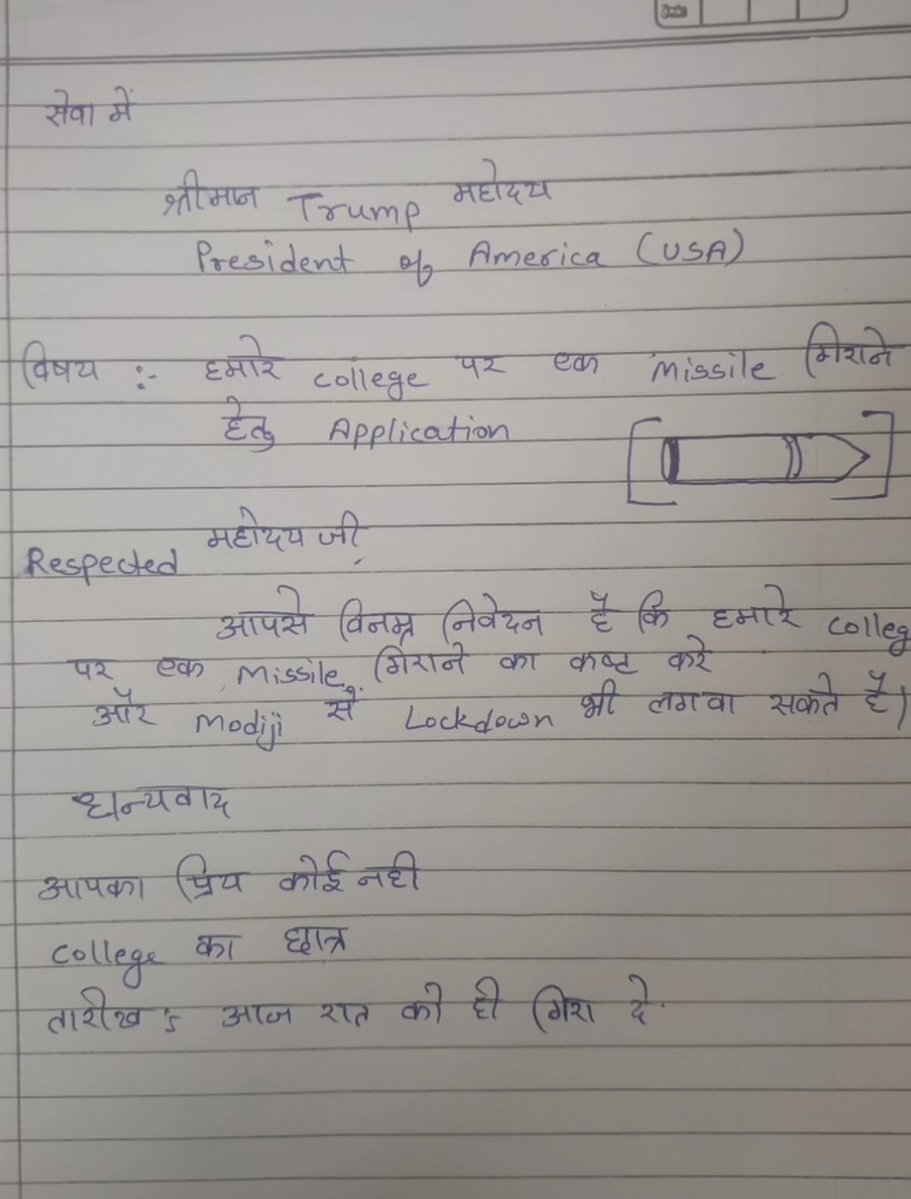 सेवा में
श्रीमान Trump महोदय
President of America (USA)
विषय :- हमारे college पर एक missile गिराने
हेतु Application
Respected महोदय जी,
आपसे विनम्र निवेदन है कि हमारे colleg
पर एक missile गिराने का कष्ट करे
और modiji से Lockdown भी लगवा सकते है।
धन्यवाद
आपका प्रिय कोई नही
college का छात्र
तारीख : आज रात को ही गिरा दे.